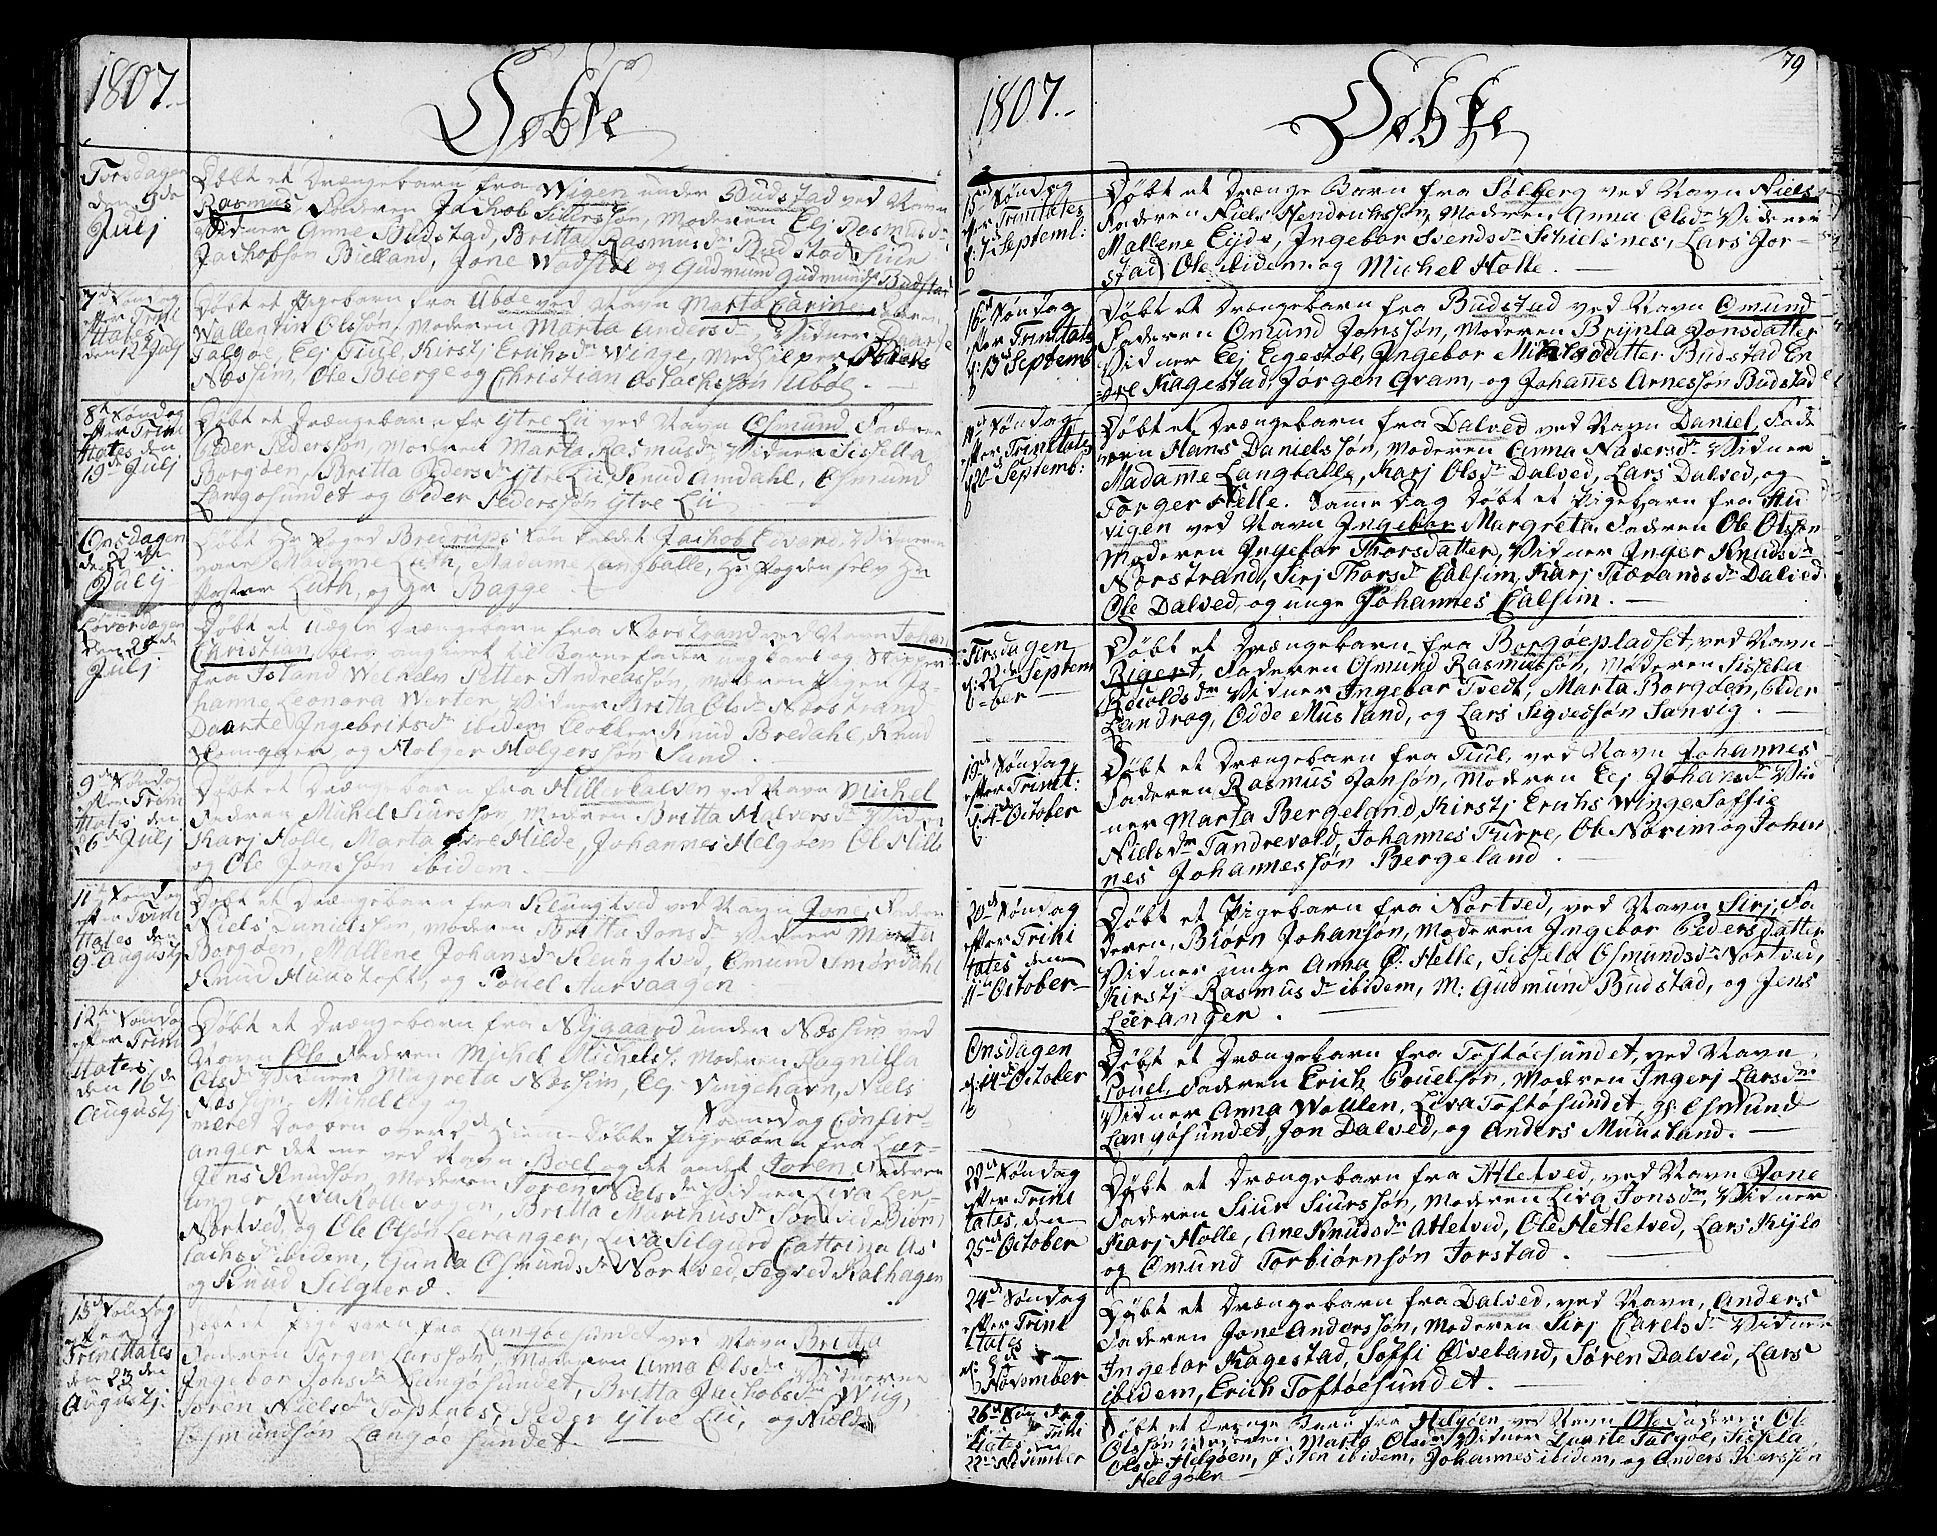 1807.
Døbte
Torsdagen
den 9de
Julj
Døbt et Drængebarn fra Wigen under Budstad ved Navn
Rasmus, Faderen Jachob Siursøn, Moderen Elj Rasmusdr
Vidner Anne Budstad, Britta Rasmusdr Budstad Siur
Jachobsøn Bieland, Jone Wadstøl og Gudmund Gudmunds. Budstad
7de Søndag
efter Trini
titates
den 12 Julj
Døbt et Pigebarn fra Ubøe ved Navn Marta Carine Faderen
Wallentin Olsøn, Moderen Marta Andersdr Vidner
Talgøe, Elj Tiul Kirstj Erichsdr Winge, Med
Næssim, Ole Bierge og Christian Ostachsøn Ubøe.
8de Søndag
efter Trini
titates den
19de Julj
Døbt et Drængebarn fr Ytre Lii ved Navn Osmund Faderen
Peder Pedersøn, Moderen Marta Rasmusdr Vidner Sissella
Borgøen, Britta Pedersdr ytre Lii Knud Amdahl, Osmund
Langøsundet og Peder Pedersøn ytre Lii
Onsdagen
de 22de
Julj
Døbt Hr Foged Kaldet Jachob Edvard, Vidnerne
vare Madame Lath, Madame Langballe, Hr Fogden selv Hr
Pastor Lath, og Hr Bagge
Løverdagen
den 25de
Julj
Døbt et Uægte Drængebarn fra Norstrand ved Navn Johan
Christian, blev angivet til Barnefader ungkarl og
fra Island Welhelm Petter Andreasøn, Moderen Pigen Jo-
hanne Leonora Werter, Vidner Britta Olsdr Norstrand
Daarte Ingebritsdr ibidem, Klokker Knud Bredahl, Knud
og Holger Holgersøn Sund.
9de Søndag
efter Trini
titates, den
26de Julj
Døbt et Drængebarn fra Hille ved Navn Michel
Faderen Michel Siursøn Moderen Britta Halvorsdr Vidner
Karj Holle, Marta øvre Hilde, Johannes Helgøen Ole Hille
og Ole Jonsøn ibidem.
11te Søndag
efter Trini
titates den
9de Augustj
Døbt et Drængebarn fra Klungtved ved Navn Jone, Faderen
Niels Moderen Britta Jonsdr Vidner Marta
Borgøen, Mallene Johansdr Klungtved, Omund
Knud og Povel Aarvaagen
12te Søndag
efter Trini
titates
den 16de
Augustj
Døbt et Drængebarn fra Nygaard under Næssim ved
Navn Ole Faderen Michel Michels: Moderen Ragnilla
Olsdr Vidner Migreta Næssim, Elj Vingehavn, Niels
Næssim, Michel og
Samme dag Confir-
meret Daaben over hieme Døbte Pigebørn fra Lær-
anger det ene ved Navn Boel og det andet Toren, Faderen
Jens Knudsøn, Moderen Toren Nielsdr Vidner Liva Leer-
anger Liva Britta Marchusdr Biørn
Nortved, og Ole Olsøn Leeranger, Liva Silgierd Cattrina As
lachsdr ibidem, Gunla Osmundsdr Nortved, Segved Kalhagen
og Knud Silgierd.
13de Søndag
efter
Trinitates
den 23den
Augustj
Døbt et Pigebarn fra Langøesundet ved Navn Britta
Faderen Torger Larsøn, Moderen Anna Olsdr Vidnerne
Ingebor Johsdr Langøsundet, Britta Jachobsdr Wiig,
Søren Nielsøn Toftnes, Peder ytre Lii, og
Osmundsøn Langøesundet.
79
1807.
Døbte
15de Søndag
efter Trinitates
d: 7de Septembl:
Døbt et Drænge Barn fra Solberg ved Navn Niels
Faderen Niels Hendrichsøn, Moderen Anna Olsdr Vidner
Mallene Eide, Ingebor Svendsdr Schielsnes, Lars Jor-
stad Ole ibidem og Michel Holle.
16de Søndag
efter Trinitates
d: 13de Septemb
Døbt et Drængebarn fra Budstad ved Navn Omund
Faderen Omund Jonsøn, Moderen Brynla Jonsdatter
Vidner Elj Egestøl, Ingebor Michelsdatter Budstad En
dre Kagestad, Jørgen Qvam, og Johañes Arnesøn Budstad
Søndag
efter Trinitates
d 20de Septemb:
Døbt et Drængebarn fra Dalved ved Navn Daniel, Fade
ren Hans Danielsøn, Moderen Anna Naversdr Vidner
Madame Langballe, Karj Olsdr Dalved, Lars Dalved, og
Torger Helle. Samme Dag Døbt et Pigebarn fra Hu
vigen ved Navn Ingebor Margreta, Faderen Ole Olsøn
Moderen Ingebor Thorsdatter, Vidner Inger Knudsdr
Norstrand, Sirj Thorsdr Calsim, Karj Tierandsdr Dalved
Ole Dalved, og unge Johannes Calsim.
Tirsdagen
d: 22de Septem
ber
Døbt et Drængebarn fra Borgøepladset, ved Navn
Bigert, Faderen Osmund Rasmusøn, Moderen Sisselu
Roioldsdr Vidner Ingebor Tvedt, Marta Borgøen, Peder
Landrog, Odde Musland, og Lars Sigvesøn Sanvig.
19de Søndag
efter Trinit:
d: 4de October
Døbt et Drængebarn fra Tiul, ved Navn Johannes
Faderen Rasmus Jonsøn, Moderen Elj Johansdr Vid
ner Marta Bergeland, Kirstj Erichs Winge Soffie
Nielsdr Tandrevold, Johannes Furre, Ole Norim og Johan
nes Johannesøn Bergeland.
20de Søndag
efter Trini
tates den
11te October
Døbt et Pigebarn fra Nortved, ved Navn Sirj, Fa
deren, Biørn Johansøn, Moderen Ingebor Pedersdatter
Vidner unge Anna Ø: Helle, Sissela Osmundsdr Nortved,
Kirstj Rasmusdr ibidem, M: Gudmund Budstad, og Jens
Leeranger.
Onsdagen
d: 14de October
Døbt et Drængebarn fra Toftøesundet, ved Navn
Povel, Faderen Erich Povelsøn, Moderen Ingerj Larsdr
Vidner Anna Wattlen, Liva Toftøsundet, gl: Osmund
Langøsundet, Jon Dalved, og Anders Muusland.
22de Søndag
efter Trini
tates, den
25de October
Døbt et Drængebarn fra Hletved, ved Navn Jone
Faderen Siur Siursøn, Moderen Liva Jonsdr, Vidner
Karj Holle, Ane Knudsdr Hletved, Ole Hetletved, Lars Kylø
og Omund Torbiørnsøn Jorstad.
24de Søndag
efter Trini
tates
d: 8de
November
Døbt et Drængebarn fra Dalved, ved Navn, Anders
Faderen Jone Andersøn, Moderen Sirj Carelsdr Vidner
Ingebor Kagestad, Soffi Øveland, Søren Dalved, Lars
ibidem, Erich Toftøesundet.
26de Søndag
efter Trini
titates den
22de November
Døbt et Drænge Barn fra Helgøen, ved Navn Ole Faderen Ole
Olsøn Moderen Marta Olsdr Vidner Dorite Talgøe, Sissela
Olsdr Helgøen, Østen ibidem, Johannes ibidem, og Anders Iversøn
Helgøen